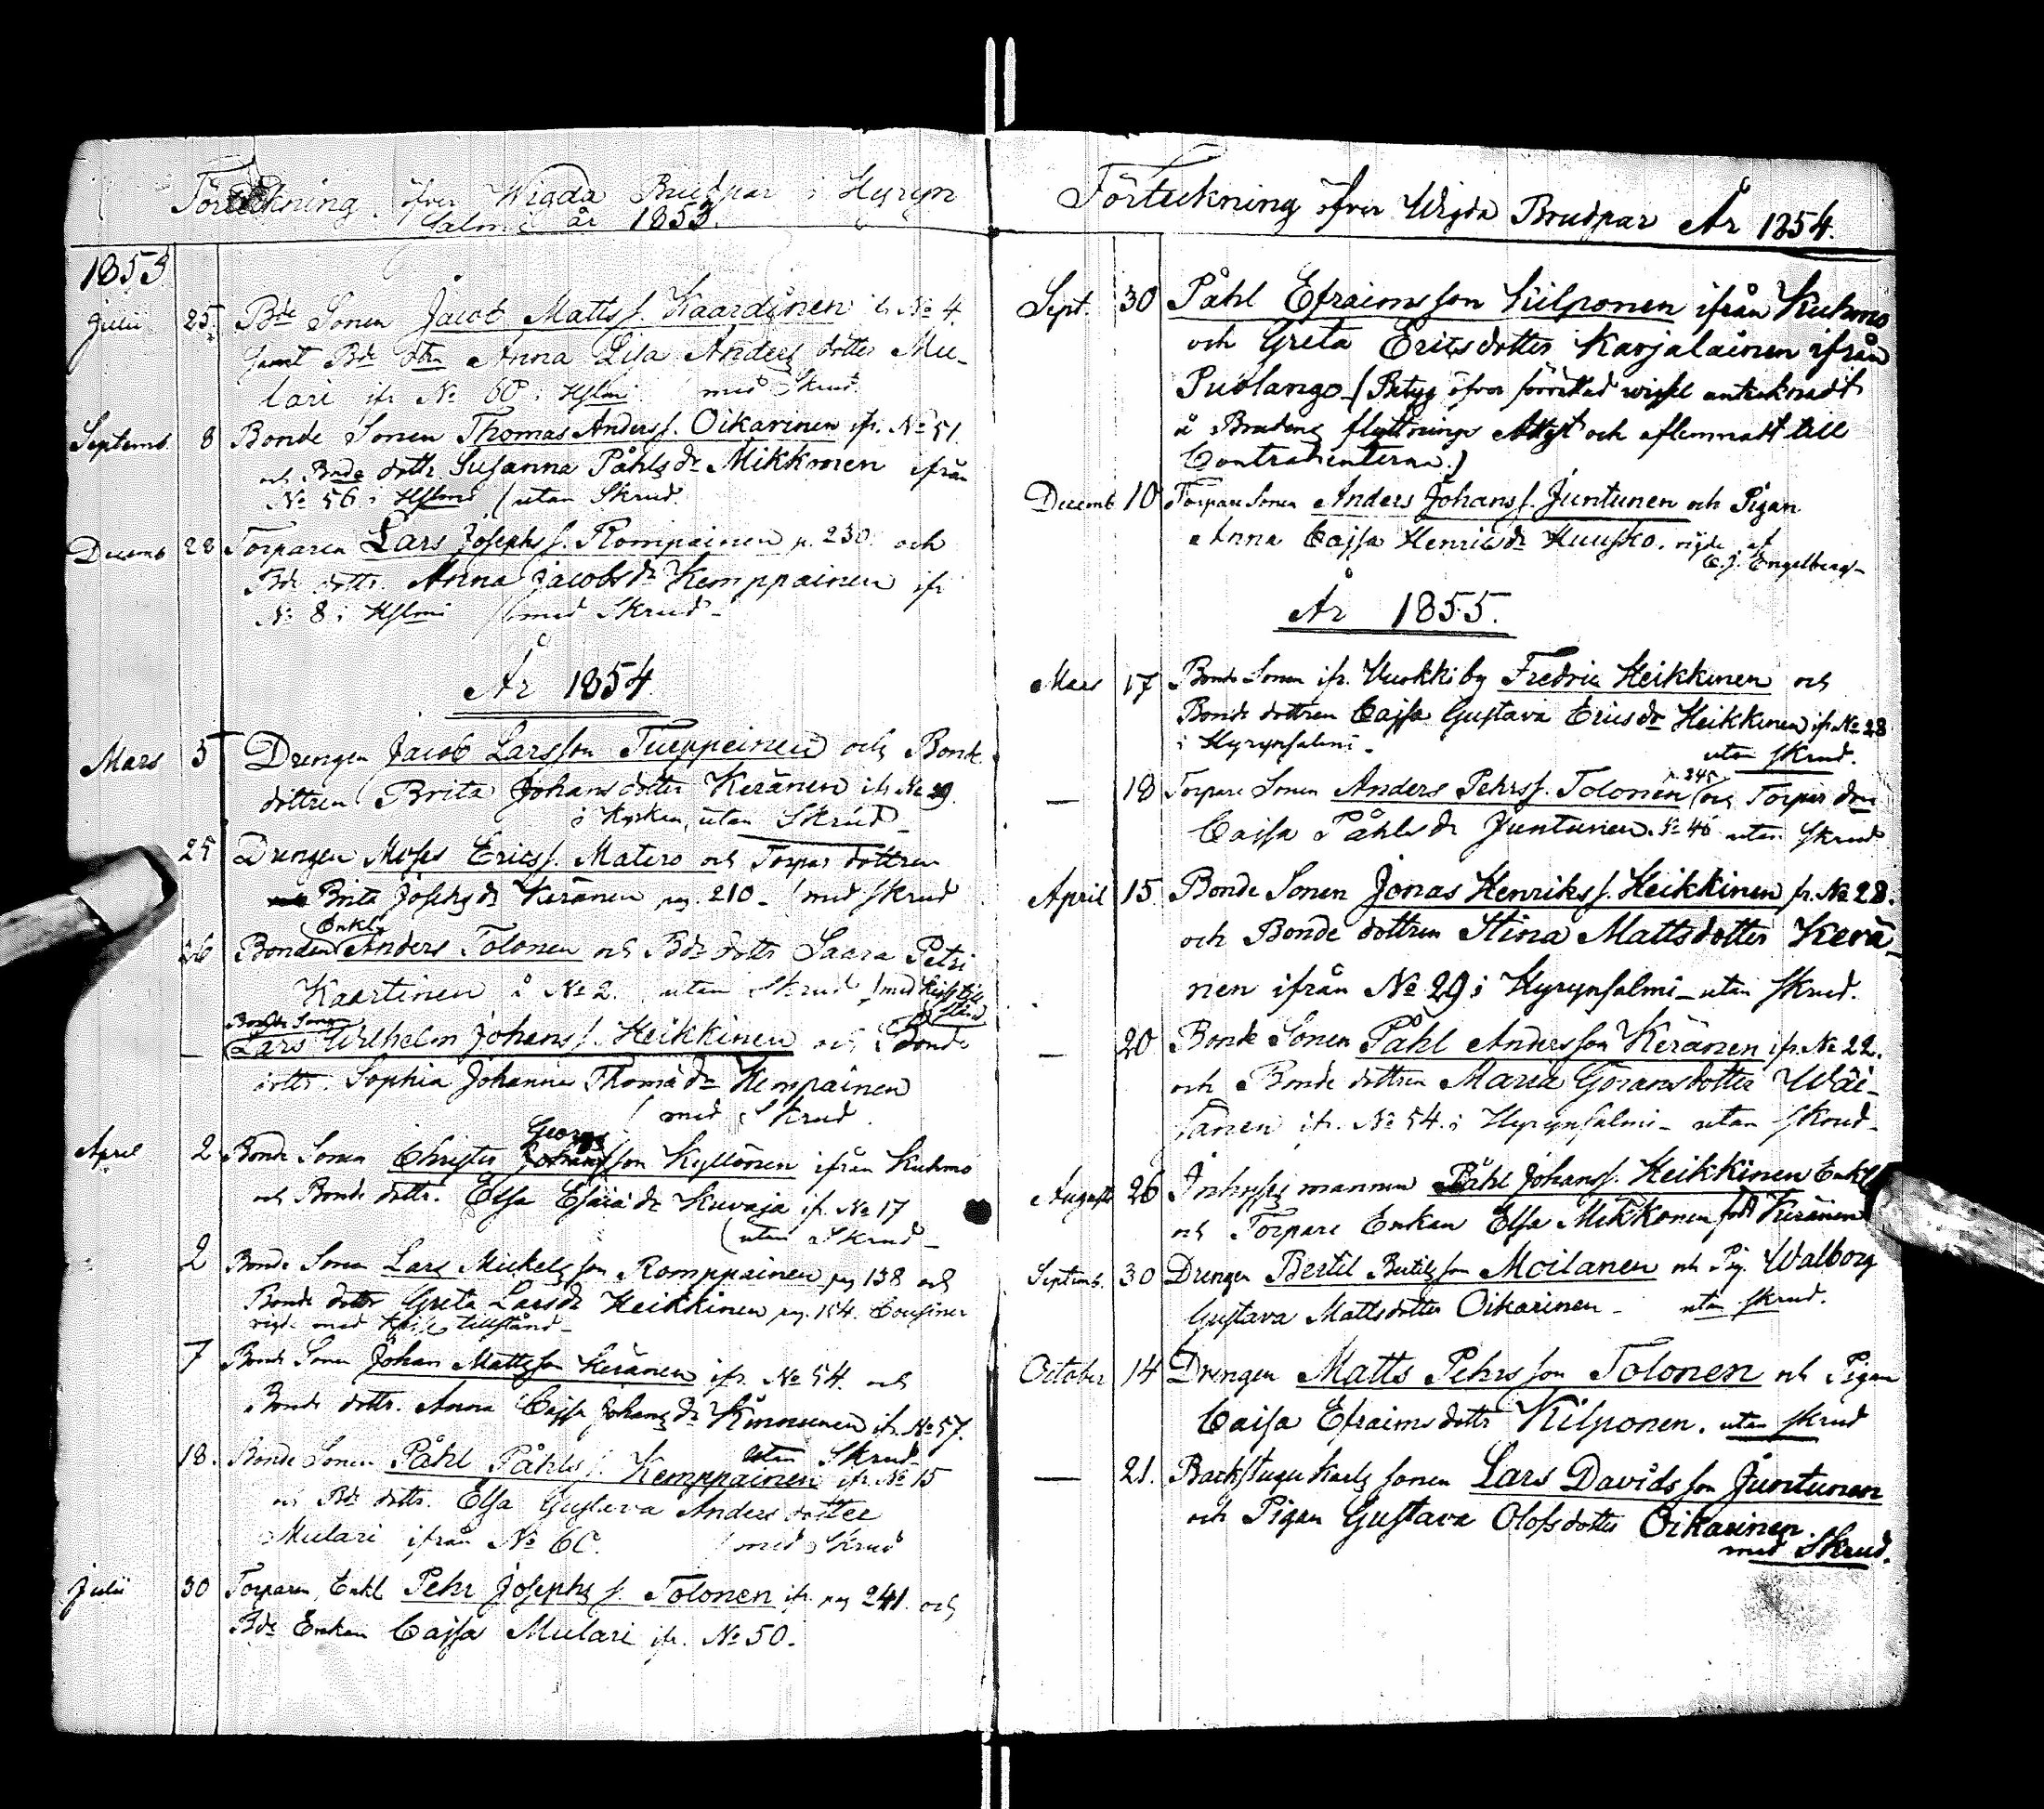 Förteckning öfver Wigda Brudpar i Hyryn
Salmi år 1853.
1853
Julii 25. Bde Sonen Jacob Matts s. Kaardinen ifr No 4.
samt Bde dtrn Anna Lisa Anders dotter Mu-
lari ifr No 60 i Hslmi med Skrud.
Septemb. 8 Bonde Sonen Thomas Anders s. Oikarinen ifr. No 51.
och Bonde dottr. Susanna Påhls dr Mikkonen ifrån
No 56 i Hslmi (utan Skrud.
Decemb 28 Torparen Lars Josephs s. Romppainen p. 230. och
Bde dottr. Anna Jacobs dr Kemppainen ifr
No 8 i Hslmi (med Skrud
År 1854.
Mars 5 Drengen Jacob Larsson Tueppeinen och Bonde
dottren Brita Johans dotter Keränen ifr No 29.
i Kyrkan, utan Skrud
25 Drengen Moses Erics s. Matero och Torpar dottren
Brita Josephs dr Keränen pag. 210 (med Skrud
Enkl.
26 Bonden Anders Tolonen och Bde dottr Saara Petri
Kaartinen å No 2. utan Skrud
Bonde Sonen
— Lars Wilhelm Johans s. Heikkinen och Bonde
dottr. Sophia Johanna Thoma dr Kempainen
(med Skrud.
Georg
April 2 Bonde Sonen Christer Johansson Kyllönen ifrån Kuhmo
och Bonde dottr. Elsa Esaia dr Kuvaja if. No 17
(utan Skrud
2 Bonde Sonen Lars Mickelsson Romppainen pag 138 och
Bonde dottr Greta Lars dr Heikkinen pag. 154. Cousiner
vigde med tillstånd
7 Bonde Sonen Johan Mattsson Keränen ifr. No 54. och
Bonde dottr. Anna Cajsa Johans dr Kinnunen ifr. No 57.
utan Skrud
18. Bonde Sonen Påhl Påhls s. Kemppainen ifr. No 15
och Bde dottr. Elsa Gustava Anders dotter
Mulari ifrån No 60. (med Skrud
Julii 30 Torparen, Enkl Pehr Josephs s. Tolonen ifr. pag 241. och
Bde Enkan Cajsa Mulari ifr. No 50.
Förteckning öfver Wigda Brudpar År 1854.
Sept. 30 Påhl Efraimsson Kilponen ifrån Kuhmo
och Greta Ericsdotter Karjalainen ifrån
Puolango (Betyg öfver förrättad wigsel antecknadt
å Brudens flyttnings Attest och aflemnadt till
Contrahenterna.)
Decemb. 10 Torpare Sonen Anders Johans s. Juntunen och Pigan
Anna Cajsa Henrics dr Huusko. vigde af
C. J. Engelberg
År 1855.
Mars 17 Bonde Sonen ifr. Vuokki by Fredric Heikkinen och
Bonde dottren Cajsa Gustava Erics dr Heikkinen ifr No 28
i Hyrynsalmi. utan skrud.
p. 245
— 18 Torpare Sonen Anders Pehrs s. Tolonen och Torpar dtrn
Caisa Påhls dr Juntunen. No 46 utan Skrud
April 15. Bonde Sonen Jonas Henriks s. Heikkinen fr. No 28.
och Bonde dottren Stina Mattsdotter Kerä-
nen ifrån No 29 i Hyrynsalmi utan Skrud.
— 20 Bonde Sonen Påhl Andersson Keränen ifr. No 22.
och Bonde dottren Maria Göransdotter Wäi-
sänen ifr. No 54. i Hyrynsalmi utan Skrud
August 26 Inhyses mannen Påhl Johans s. Heikkinen Enkl
och Torpare Enkan Elsa Mikkonen född Keränen
Septemb. 30 Drengen Bertil Bertilsson Moilanen och Pig. Walborg
Gustava Mattsdotter Oikarinen utan skrud.
October 14 Drengen Matts Pehrsson Tolonen och Pigan
Caisa Efraimsdottr Kilponen. utan skrud
— 21. Backstugu Karls sonen Lars Davidsson Juntunen
och Pigan Gustava Olofsdotter Oikarinen.
med Skrud.